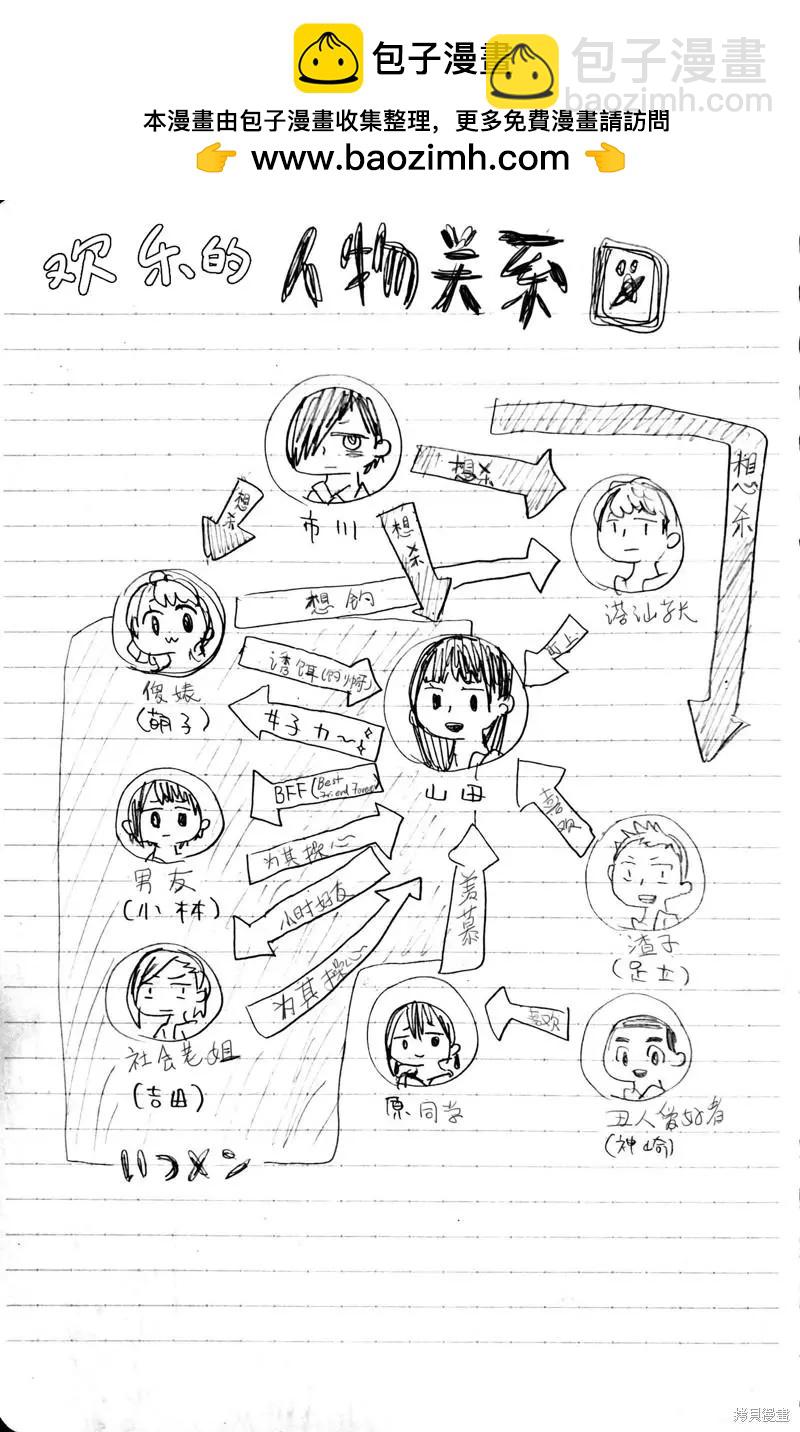 包子漫畫
包子漫畫
baozimh.com
本漫畫由包子漫畫收集整理，更多免費漫畫請訪問
👉 www.baozimh.com 👈
欢乐的人物关系図
市川
想杀
想杀
想杀
想杀
想钓
搭讪学长
诱饵(钓
傻婊
(萌子)
女子力～
盯上
山田
BFF(Best Friend Forever
男友
(小林)
为其操心
喜欢
小时好友
羡慕
渣子
(足立)
为其操心
社会老姐
(吉田)
原同学
喜欢
丑人爱好者
(神崎)
拷貝漫畫